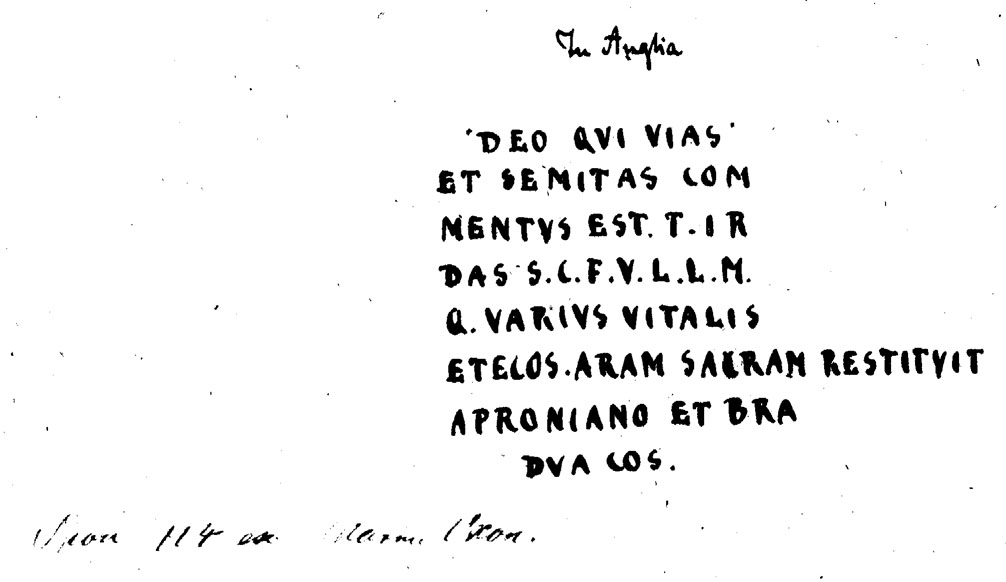 In Anglia
'DEO QVI VIAS'
ET SEMITAS COM
MENTVS EST. T. I R
DAS S.C.F.V.L.L.M.
Q. VARIVS VITALIS
ETECOS. ARAM SACRAM RESTITVIT
APRONIANO ET BRA
DVA COS.
Spon 114 ex Marm. Oxon.